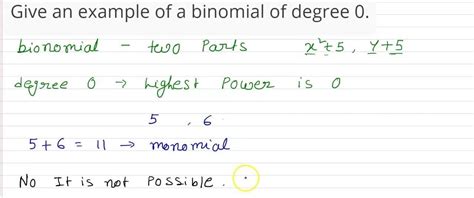 Give an example of a binomial of degree 0.
bionomial - two parts x²+5, y+5
degree 0 → highest power is 0
5 , 6
5+6 = 11 → monomial
No It is not possible.